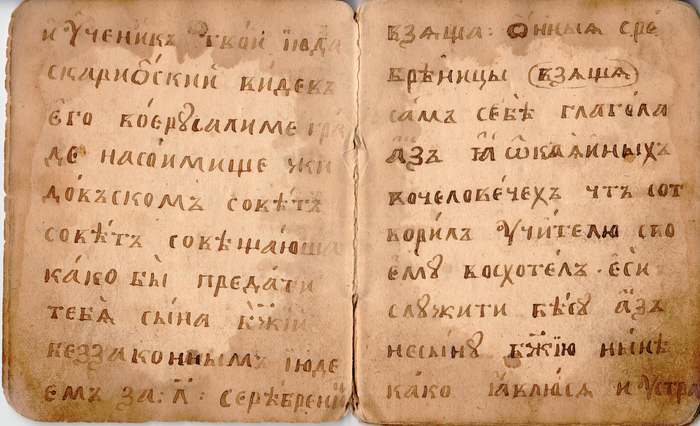 и Ꙋченикъ твой іюда
скариѡ́ский видевъ
є́го воєрꙋсалиме гра
де насоимище жи
до́въскомъ сове́тъ
сове́тъ совещающа
ка́ко бы̀ преда́ти
тебѧ̀ сы́на бж҃їѧ
беззаконнымъ іюде
емъ за: л҃: сере́брени
взѧша: О́нныѧ сре
бре́ницы (взѧшѧ)
са́мъ себѣ̀ глаго́ла
а҆́зъ ꙗ҆̀ ѡ҆каѧ́нныхъ
вочелове́чехъ чтъ сот
вори́лъ Ꙋчи́телю сво
ємꙋ̀ восхоте́лъ еси
слꙋжити бе́сꙋ а҆́зъ
несы́нꙋ бж҃їю ны́нѣ
ка́ко ꙗ҆влю́сѧ и Ꙋстра